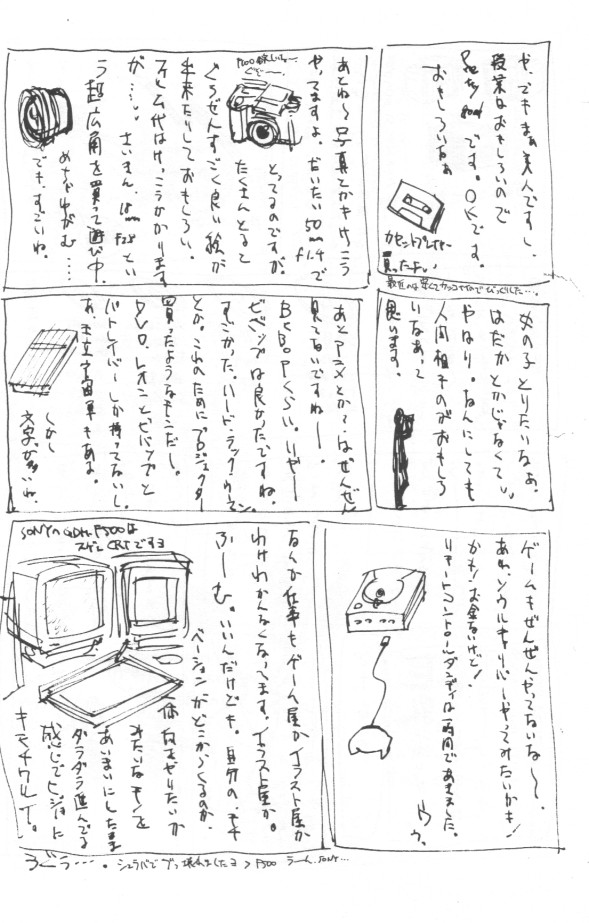 や、でもまぁ美人ですし、
授業はおもしろいので
です。OKです。
おもしろいなぁ
カセットプレイヤー
買ったよい
最近のは早くてカッコイイのでびっくりした…。
あとね〜写真とかもけっこう
やってますよ。だいたい50mm f1.4で
F100欲しい〜
ぐぞ〜
とってるのですが、
たくさんとると
ぐうぜんすごく良い絵が
出来たりしておもしろい。
フィルム代はけっこうかかります
が…。さいきん、18mm F2.8とい
う超広角を買って遊び中。
めちゃゆがむ……
でも、すごいね。
女の子とりたいなぁ。
はだかとかじゃなくて。
やはり。なんにしても
人間相手のがおもしろ
いなあって
思います。
あとアニメとか?はぜんぜん
見てないですねー。
BEBOPくらい。いやー
ビバップは良かったですね。
すごかった。ハード・ラック・ウーマン
とか。これのためにプロジェクター
買ったようなモンだし。
DVD、レオンとビバップと
パトレイバーしか持ってないし。
あ、王立宇宙軍もあるよ。
しかし
文字が多いね。
ゲームもぜんぜんやってないな〜、
あぁ、ソウルキャリバーやってみたいかも!
かも!お金ないけど!
リモートコントロールダンディは一時間であきました。
ウゥ、
なんか仕事もゲーム屋かイラスト屋か
わけわかんなくなってます。イラスト屋か。
ふーむ。いいんだけども。自分の、モチ
ベーションがどこからくるのか、
何をやりたいか
みたいなモノを
あいまいにしたまま
ダラダラ進んでる
感じでヒジョーに
キモチワルイで。
SONYのGDM-F500は
スゲーCRTですヨ
うぐぅ…。シュラバでブッ壊れましたヨ＞F500 うーん、SONY…